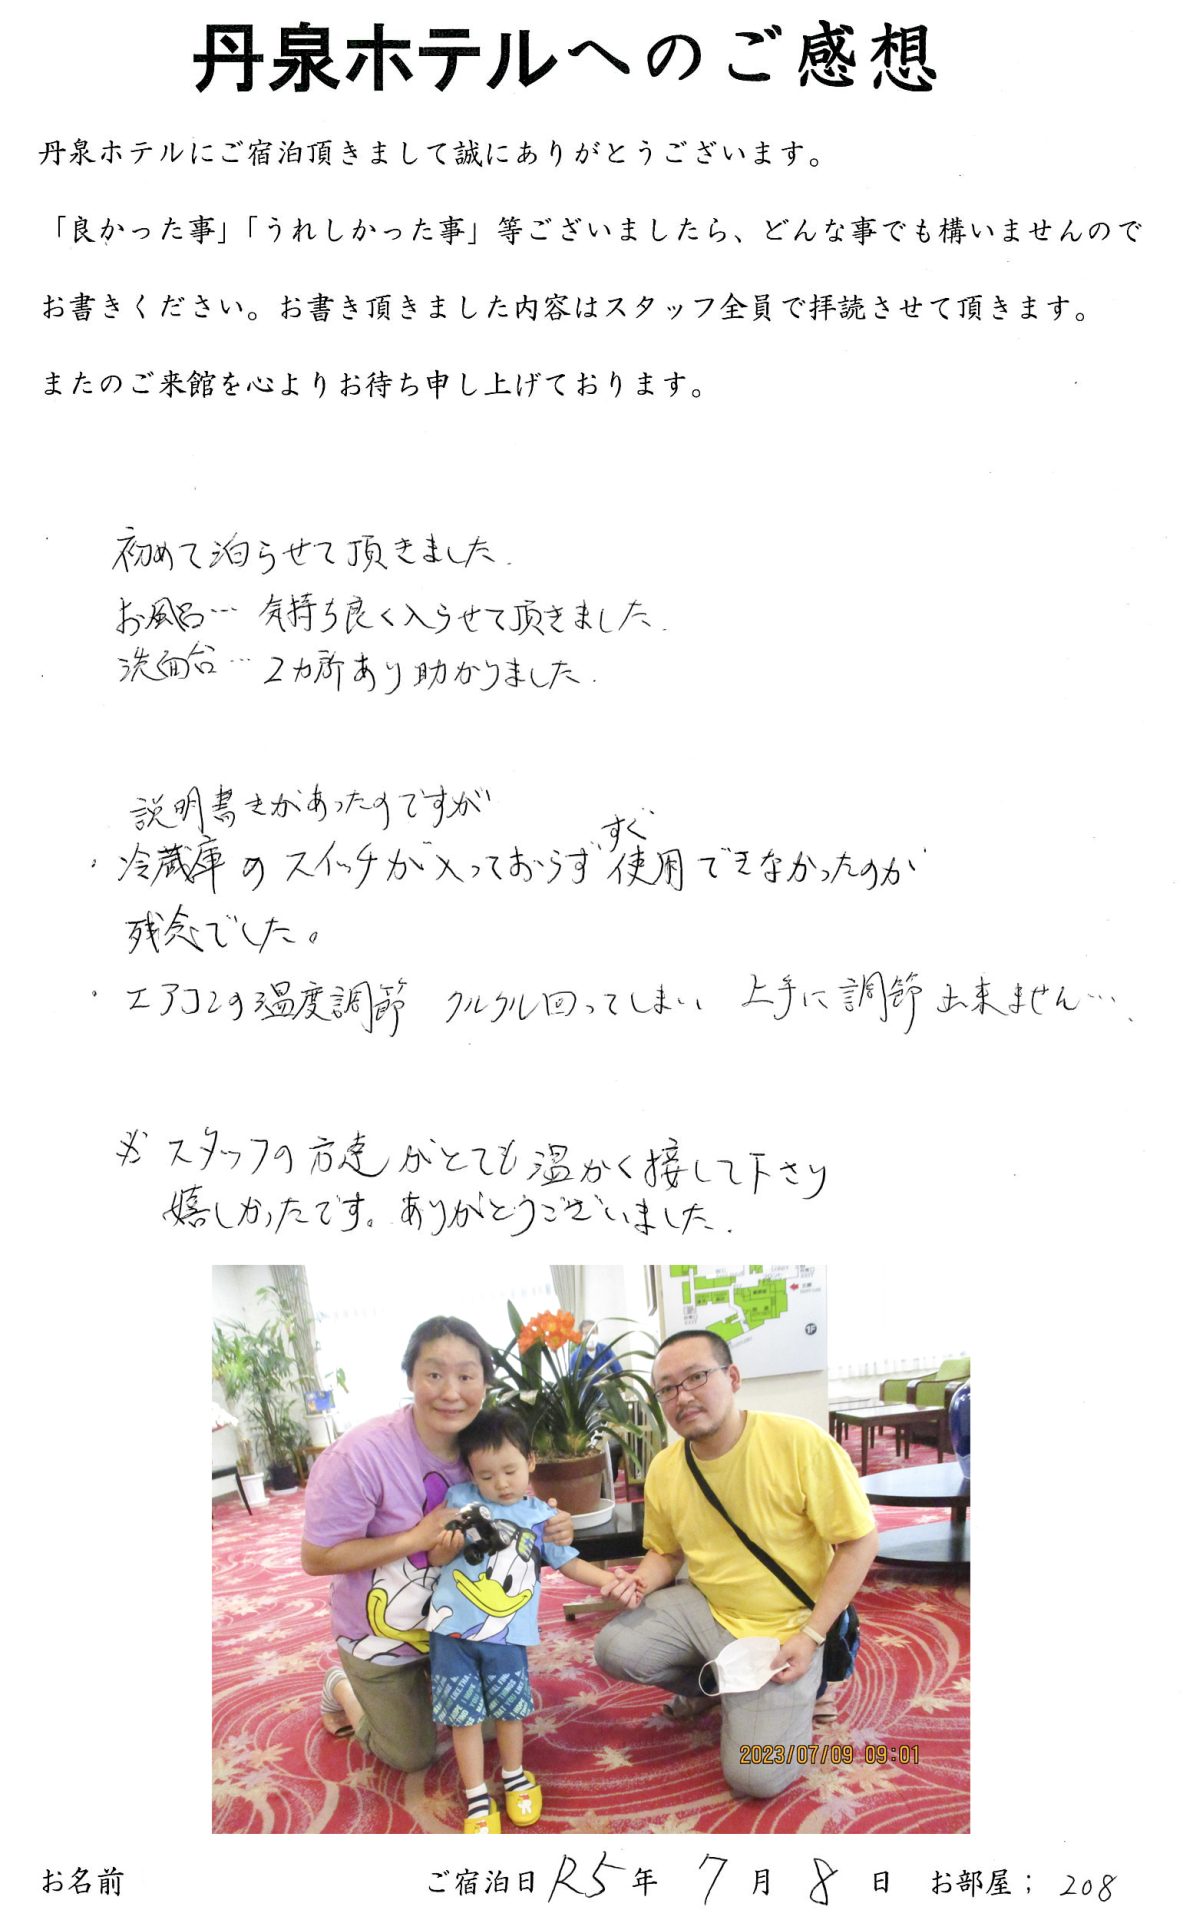 丹泉ホテルへのご感想
丹泉ホテルにご宿泊頂きまして誠にありがとうございます。
「良かった事」「うれしかった事」等ございましたら、どんな事でも構いませんので
お書きください。お書き頂きました内容はスタッフ全員で拝読させて頂きます。
またのご来館を心よりお待ち申し上げております。
初めて泊らせて頂きました.
お風呂… 気持ち良く入らせて頂きました.
洗面台… 2カ所あり助かりました.
説明書きがあったのですが
・冷蔵庫のスイッチが入っておらずすぐ使用できなかったのが
残念でした。
・エアコンの温度調節 クルクル回ってしまい 上手に調節出来ません….
スタッフの方達がとても温かく接して下さり
嬉しかったです。ありがとうございました.
1F
2023/07/09 09:01
お名前 ご宿泊日 R5年 7月 8日 お部屋; 208